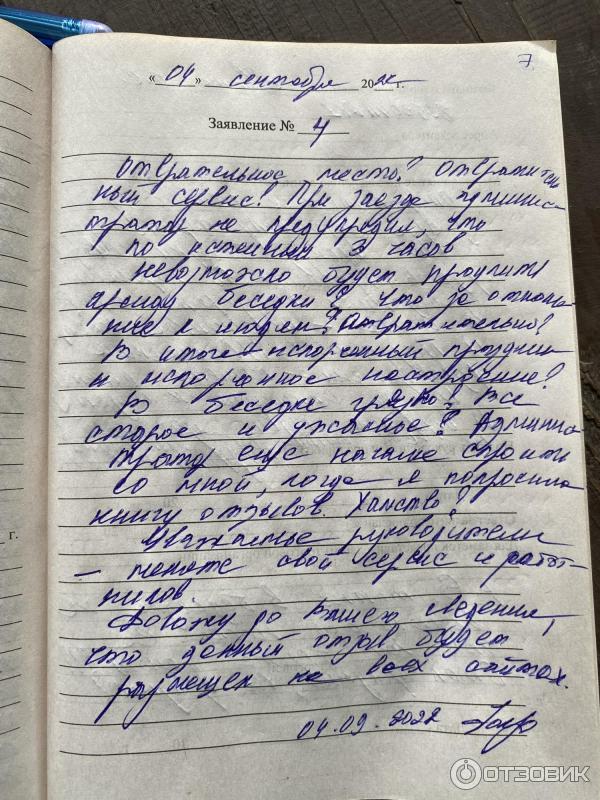 7.
«04» сентября 2022 г.
Заявление № 4
Отвратительное место! Отвратитель
ный сервис! При заезде админис
тратор не предупредил, что
по истечении 3 часов
невозможно будет продлить
аренду беседки! Что за отноше
ние к людям? Отвратительно!
В итоге испорченный праздник
и испорченное настроение!
В беседке грязно! Все
старое и ужасное! Админис
тратор еще начале спорить
со мной, когда я попросила
книгу отзывов. Хамство!
Уважаемые руководители
– меняйте свой сервис и работ-
ников.
Довожу до Вашего сведения,
что данный отзыв будет
размещен на всех сайтах.
04.09.2022
г.
ОТЗОВИК